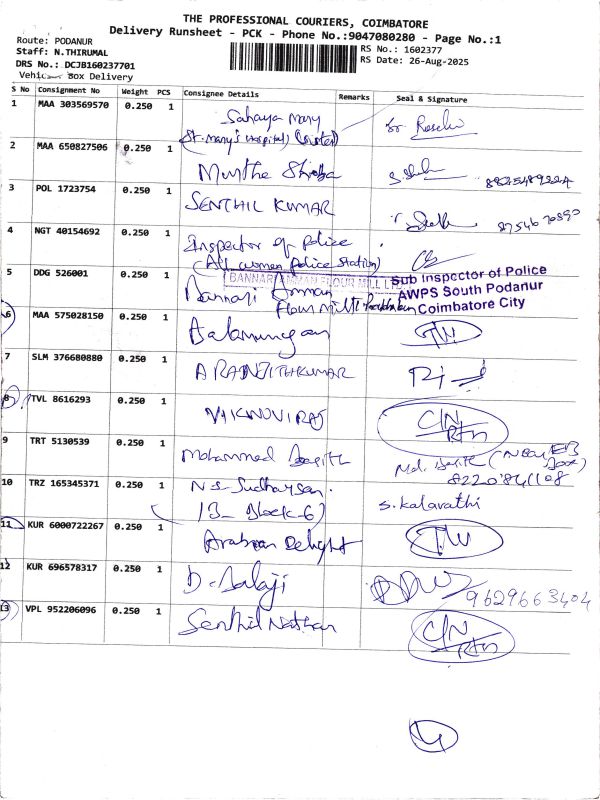 THE PROFESSIONAL COURIERS, COIMBATORE
Delivery Runsheet - PCK - Phone No.:9047080280 - Page No.:1
Route: PODANUR
Staff: N.THIRUMAL
DRS No.: DCJB160237701
Vehicle: Box Delivery
RS No.: 1602377
RS Date: 26-Aug-2025
S No Consignment No Weight PCS Consignee Details Remarks Seal & Signature
1 MAA 303569570 0.250 1 Sahaya Mary
St. Mary's Hospital) (Sister)
2 MAA 650827506 0.250 1
3 POL 1723754 0.250 1 SENTHIL KUMAR
4 NGT 40154692 0.250 1 Inspector of Police
(All women Police Station)
5 DDG 526001 0.250 1 Bannari Amman
Flour Mill
BANNARI AMMAN FLOUR MILL LTD
Sub Inspector of Police
AWPS South Podanur
Coimbatore City
6 MAA 575028150 0.250 1 Balamurugan
7 SLM 376680880 0.250 1 A RANJITHKUMAR
8 TVL 8616293 0.250 1 C/N
Rtn
9 TRT 5130539 0.250 1 Mohammed
8220841108
10 TRZ 165345371 0.250 1 N.S. Sudharsan
(B- Block-6) S. Kalavathi
11 KUR 6000722267 0.250 1 Arabian Delight
12 KUR 696578317 0.250 1 D. Balaji 9629663404
13 VPL 952206096 0.250 1 Senthil Nathan C/N
Rtn